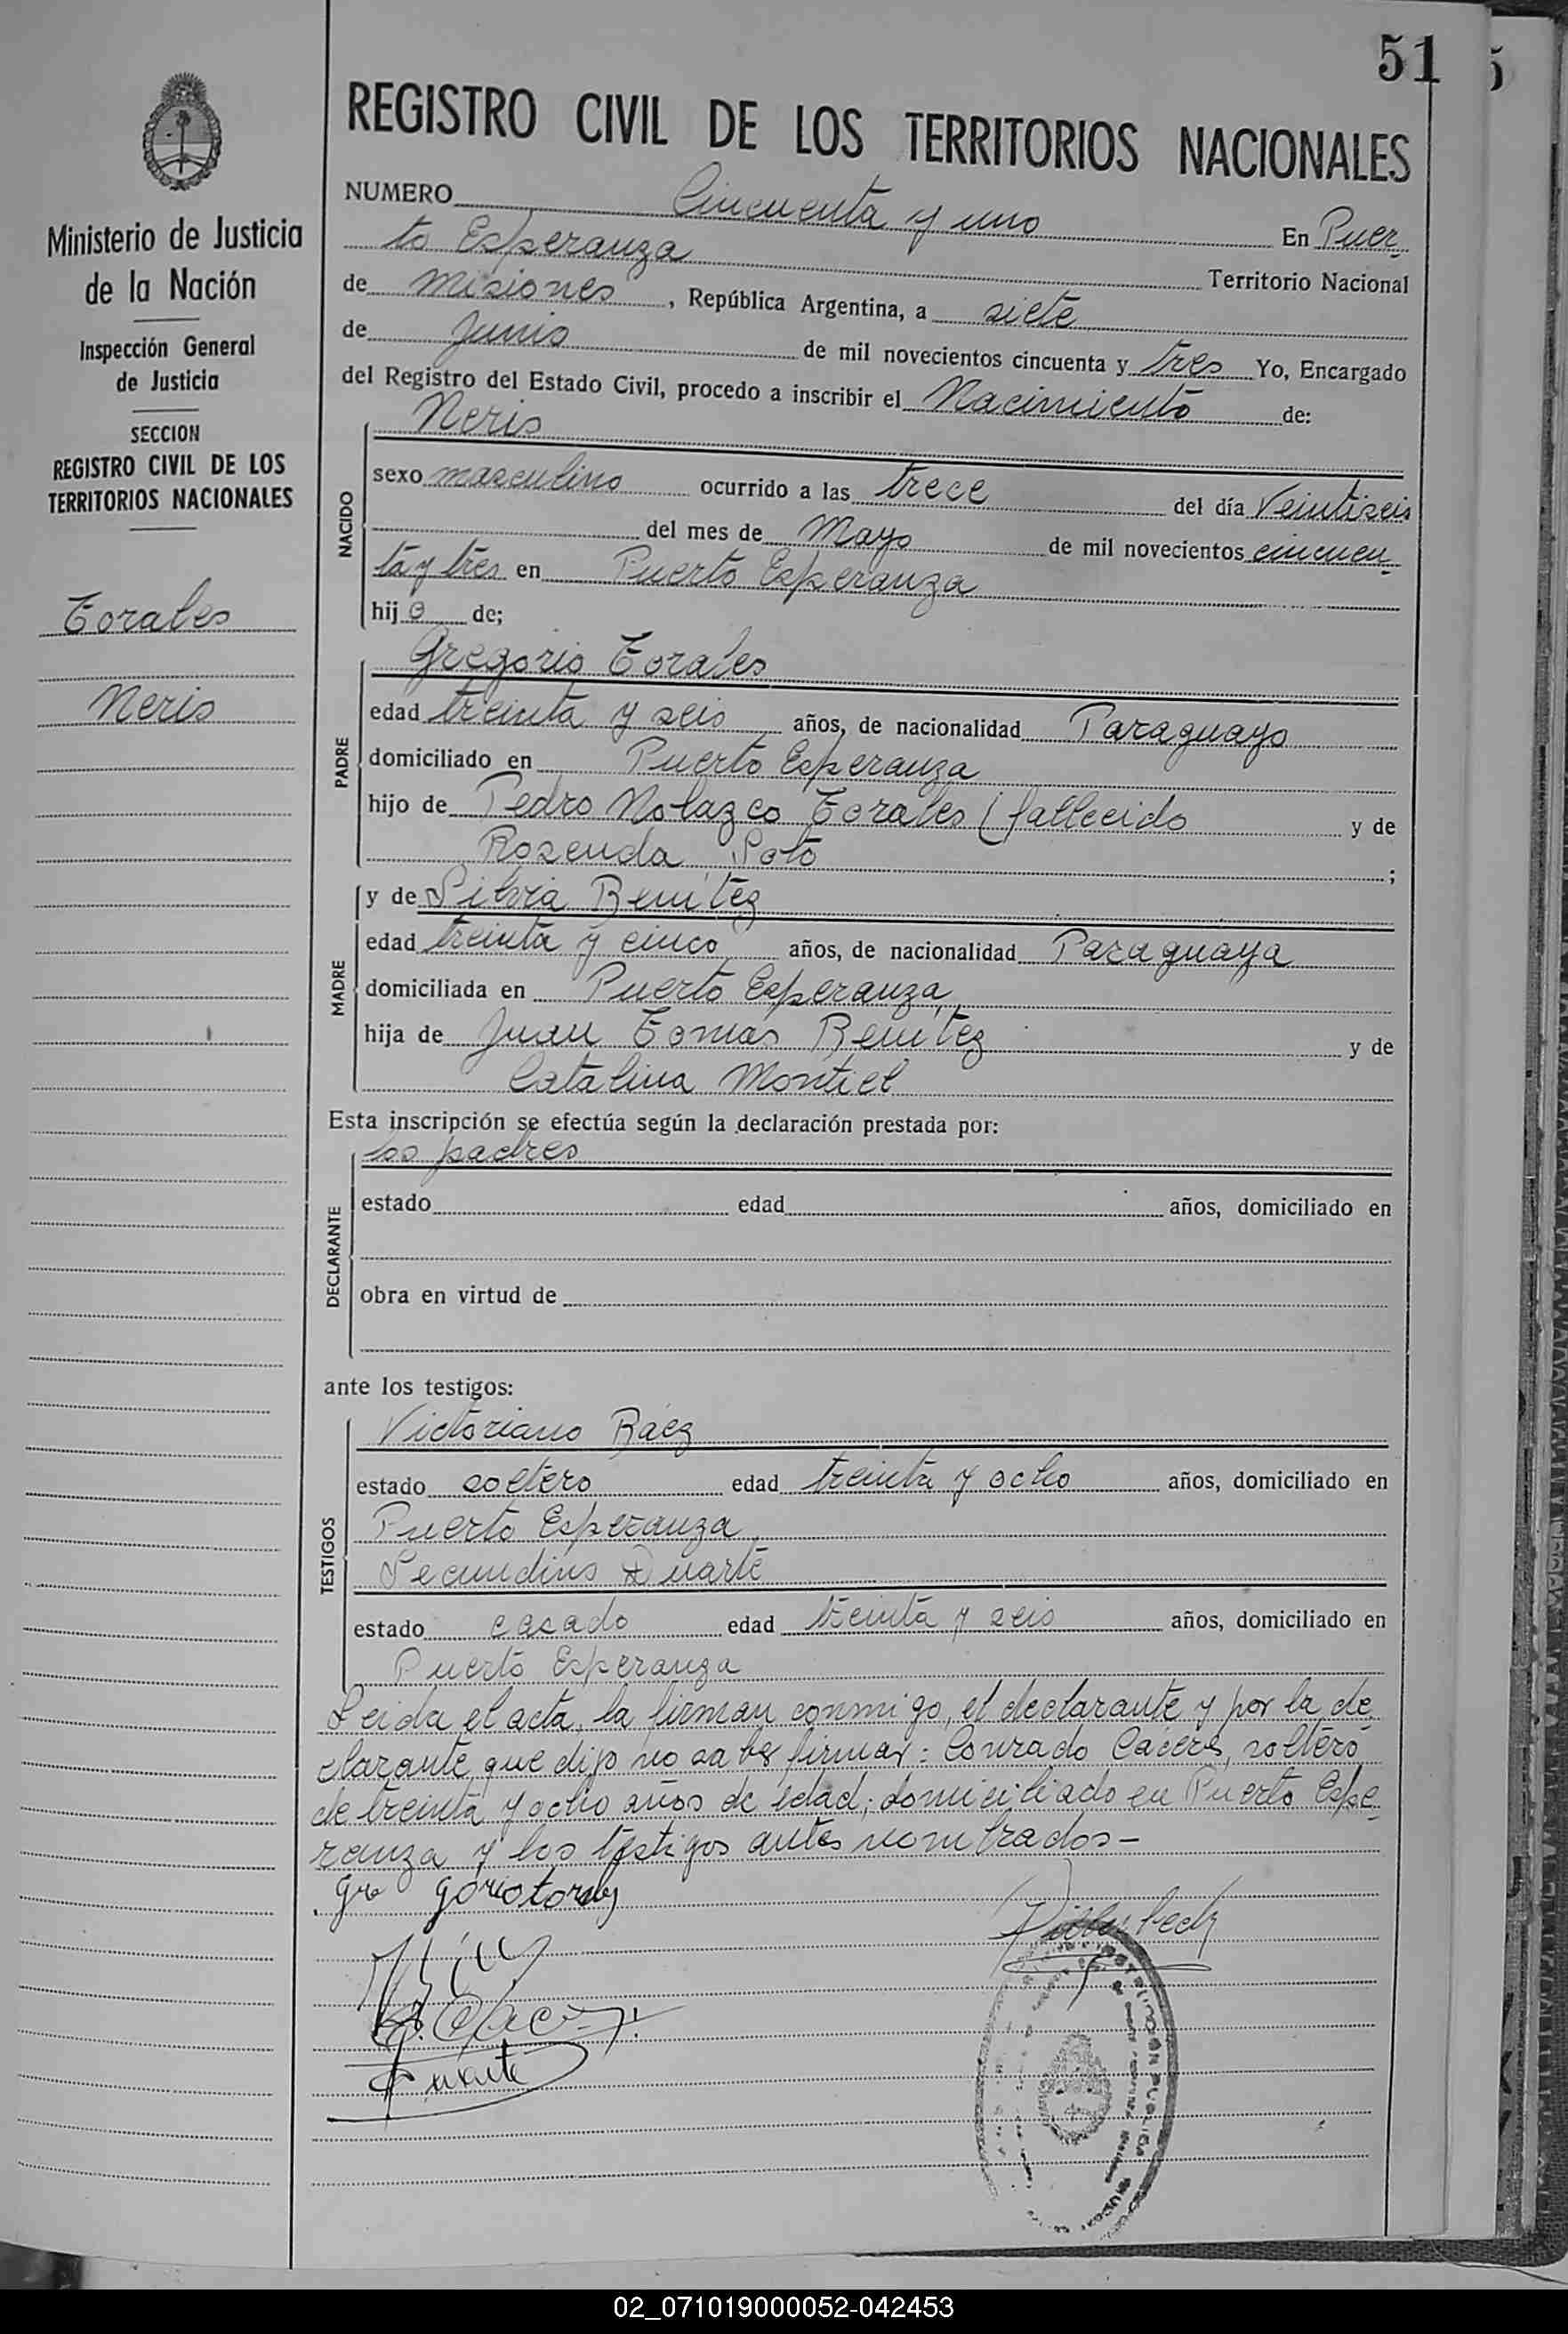 51
REGISTRO CIVIL DE LOS TERRITORIOS NACIONALES
Ministerio de Justicia
de la Nación
Inspección General
de Justicia
SECCION
REGISTRO CIVIL DE LOS
TERRITORIOS NACIONALES
Torales
Neris
NUMERO Cincuenta y uno En Puer-
to Esperanza Territorio Nacional
de Misiones, República Argentina, a siete
de Junio de mil novecientos cincuenta y tres Yo, Encargado
del Registro del Estado Civil, procedo a inscribir el Nacimiento de:
NACIDO
Neris
sexo masculino ocurrido a las trece del día Veintiseis
del mes de Mayo de mil novecientos cincuen-
ta y tres en Puerto Esperanza
hijo de;
PADRE
Gregorio Torales
edad treinta y seis años, de nacionalidad Paraguayo
domiciliado en Puerto Esperanza
hijo de Pedro Nolazco Torales (fallecido y de
Rosenda Soto ;
MADRE
y de Silvia Benitez
edad treinta y cinco años, de nacionalidad Paraguaya
domiciliada en Puerto Esperanza
hija de Juan Tomas Benitez y de
Catalina Montiel
Esta inscripción se efectúa según la declaración prestada por:
DECLARANTE
los padres
estado edad años, domiciliado en
obra en virtud de
ante los testigos:
TESTIGOS
Victoriano Báez
estado soltero edad treinta y ocho años, domiciliado en
Puerto Esperanza
Secundino Duarte
estado casado edad treinta y seis años, domiciliado en
Puerto Esperanza
Leida el acta, la firman conmigo, el declarante y por la de-
clarante que dijo no saber firmar: Conrado Cáceres, soltero
de treinta y ocho años de edad; domiciliado en Puerto Espe-
ranza y los testigos antes nombrados-
Gre goriotorales
Duarte
02_071019000052-042453